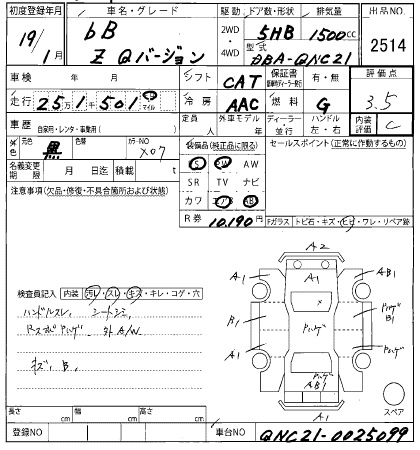 初度登録年月
車名・グレード
駆動
ドア数・形状
排気量
出品NO.
19/1月
bB
Z Qバージョン
2WD
・
4WD
5HB
1500cc
型式
DBA-QNC21
2514
車検
年
月
シフト
CAT
保証書
有・無
評価点
走行
25万1千501
マイル
冷房
AAC
燃料
G
3.5
車歴
自家用・レンタ・事業用( )
定員
人
外車モデル
年
ディーラー・並行
ハンドル
左・右
内装評価
C
外色
元色
黒
色替
カラーNO
X07
装備品(純正品に限る)
セールスポイント(正常に動作するもの)
名義変更期限
月
日迄
積載
t
S
PW
AW
SR
TV
ナビ
カワ
エアB
AB
注意事項(欠品・修復・不具合箇所および状態)
R券
10,190円
Fガラス
トビ石・キズ・ヒビ・ワレ・リペア跡
A2
A1
A1
AB1
B1
ハゲ
ハゲB1
A1
ハゲ
AB1
A1
A1
検査員記入
内装
汚レ・スレ・キズ・キレ・コゲ・穴
ハンドルスレ シートシミ
Rスポイラハゲ 外A/W
キズ、B、
スペア
長さ
cm
幅
cm
高さ
cm
登録NO
車台NO
QNC21-0025099